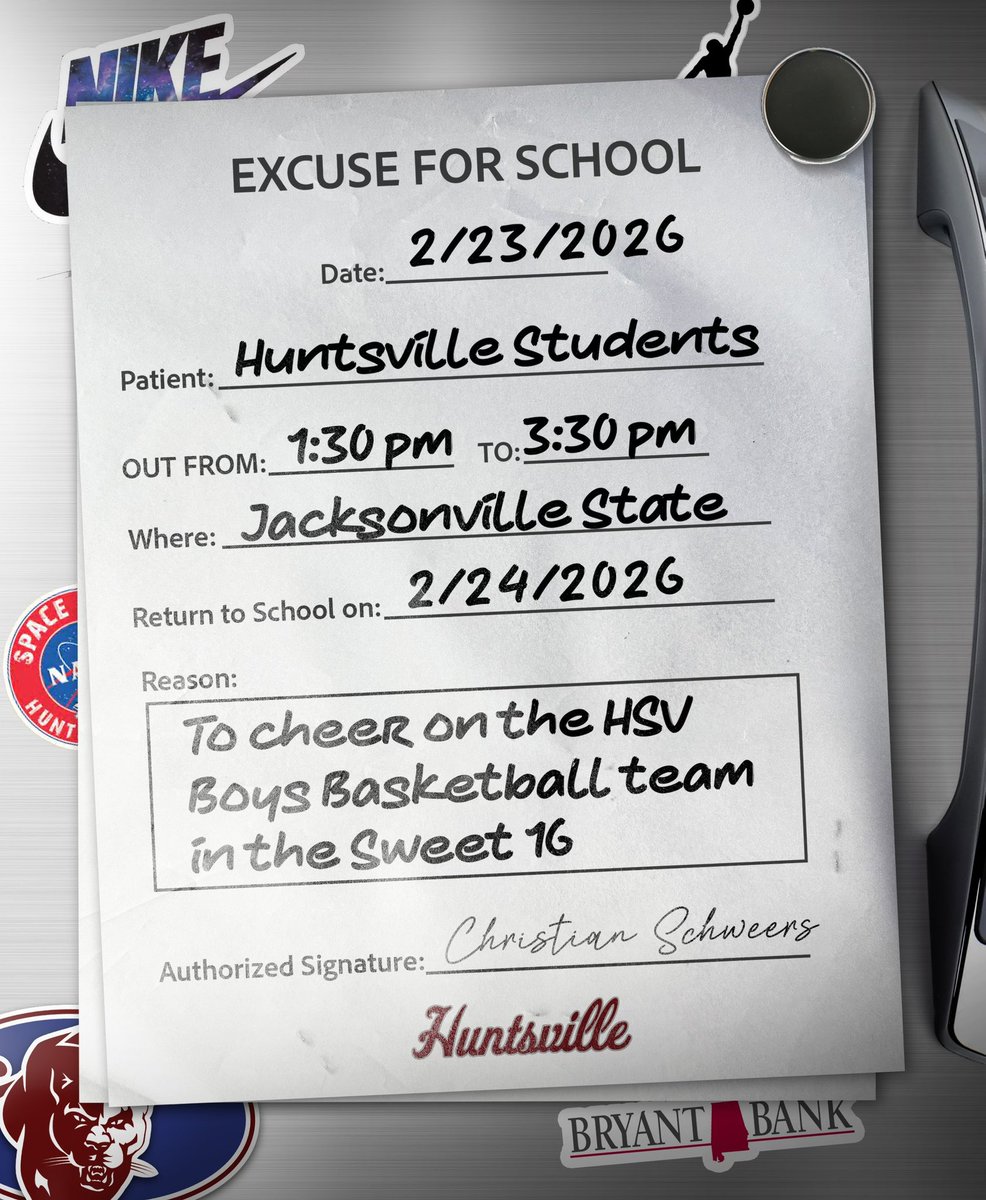 NIKE
EXCUSE FOR SCHOOL
Date: 2/23/2026
Patient: Huntsville Students
OUT FROM: 1:30 pm TO: 3:30 pm
Where: Jacksonville State
Return to School on: 2/24/2026
SPACE
NA
HUNT
Reason:
To cheer on the HSV
Boys Basketball team
in the Sweet 16
Authorized Signature: Christian Schweers
Huntsville
BRYANT BANK